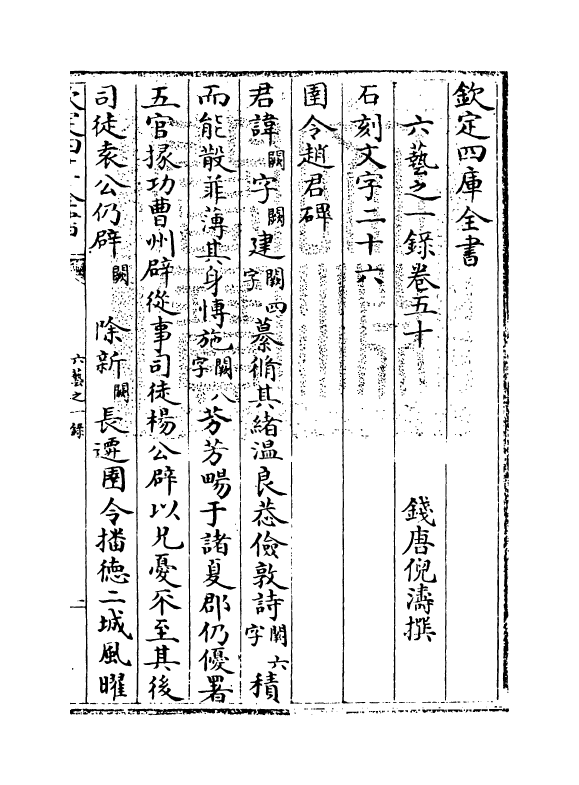 欽定四庫全書
六藝之一錄卷五十
錢唐倪濤撰
石刻文字二十六
圉令趙君碑
君諱闕字闕建闕四字慕脩其緒溫良恭儉敦詩闕六字積
而能散菲薄其身愽施闕八字芬芳畼于諸夏郡仍優署
五官掾功曹州辟從事司徒楊公辟以兄憂不至其後
司徒袁公仍辟闕除新闕長遷圉令播德二城風曜
六藝之一錄